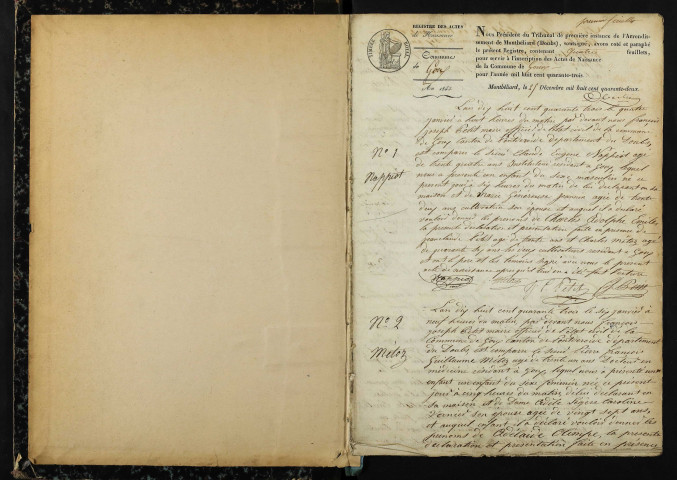 premier feuillet
REGISTRE DES ACTES
de Naissance
Commune
de Goux
An 1843
TIMBRE ROYAL
Nous Président du Tribunal de première instance de l'Arrondissement
de Montbéliard (Doubs), soussigné, avons coté et paraphé
le présent Registre, contenant feuillets,
pour servir à l'inscription des Actes de Naissance
de la Commune de Goux
pour l'année mil huit cent quarante-trois.
Montbéliard, le 25 Décembre mil huit cent quarante-deux.
N° 1
Nappiot
L'an dix huit cent quarante trois le quatre
janvier à huit heures du matin par devant nous françois
joseph Petit maire officier de l'état civil de la commune
de Goux Canton de département du Doubs
est comparu le sieur Claude Eugene Nappiot age
de trente quatre ans Instituteur résidant à Goux lequel
nous a présenté un enfant du sexe masculin né ce
présent jour à six heures du matin de lui déclarant en sa
maison et de jeanne agée de trente
ans cultivatrice son épouse et auquel il a déclaré
vouloir donner les prenoms de Charles Adolphe Emile
la presente déclaration et présentation faite en presence de
Petit age de trente ans et Charles Méloz agé
de quarante six ans les deux cultivateurs résidant à Goux
et ont le pere et les témoins signé avec nous le présent
acte de naissance après qu'il leur en a été fait lecture
Nappiot
Petit
N° 2
Méloz
L'an dix huit cent quarante trois le six janvier à
neuf heures du matin par devant nous françois
joseph Petit maire officier de l'état civil de la
Commune de Goux Canton de département
du Doubs est comparu le sieur Pierre françois
Guillaume Méloz age de trente un ans Docteur en
médecine résidant à Goux lequel nous a présenté un
enfant du sexe feminin née ce présent
jour à cinq heures du matin de lui déclarant en
sa maison et de Dame Adèle Caroline
son épouse agée de vingt sept ans
et auquel enfant il a déclaré vouloir donner les
prenoms de Adélaïde Olimpe, la presente
déclaration et présentation faite en présence